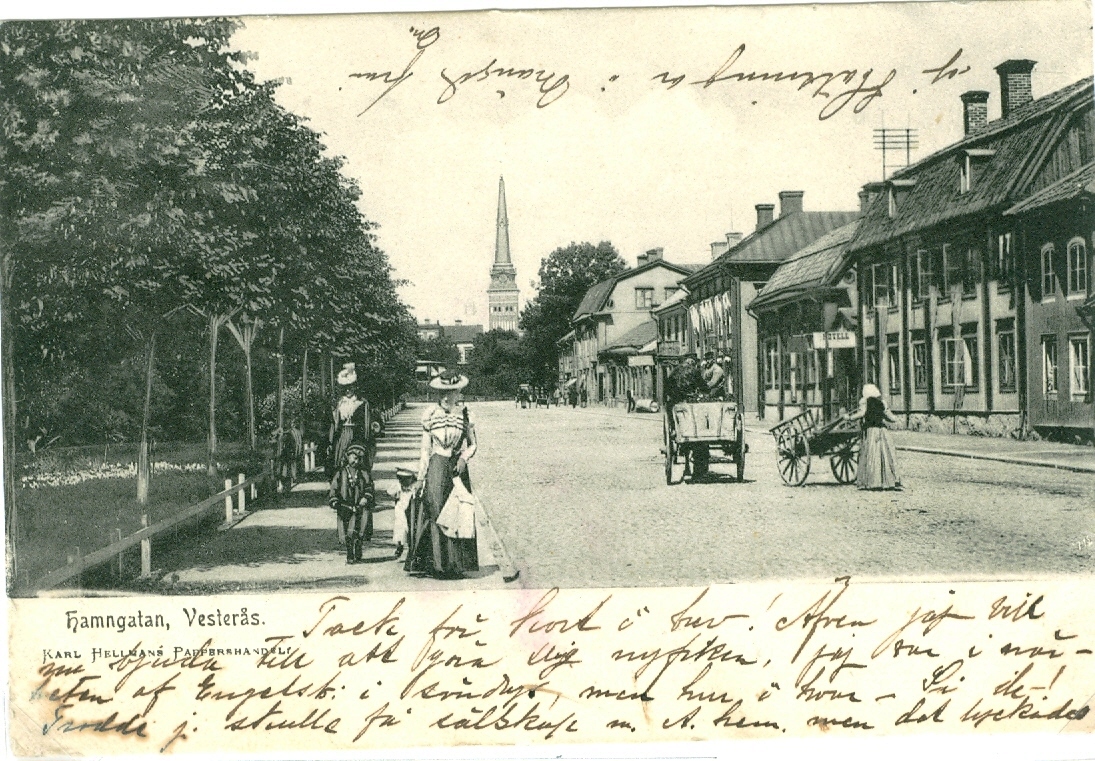 HOTELL
Hamngatan, Vesterås.
KARL HELLMANS PAPPERSHANDEL.
Tack för kort o bref! Äfven jag vill
nu bjuda till att göra dig nyfiken, jag var i när-
heten af Engelsk. i söndags men hur o hvar - Si de!
Trodde j. skulle få sällskap m. A. hem. men det lyckades